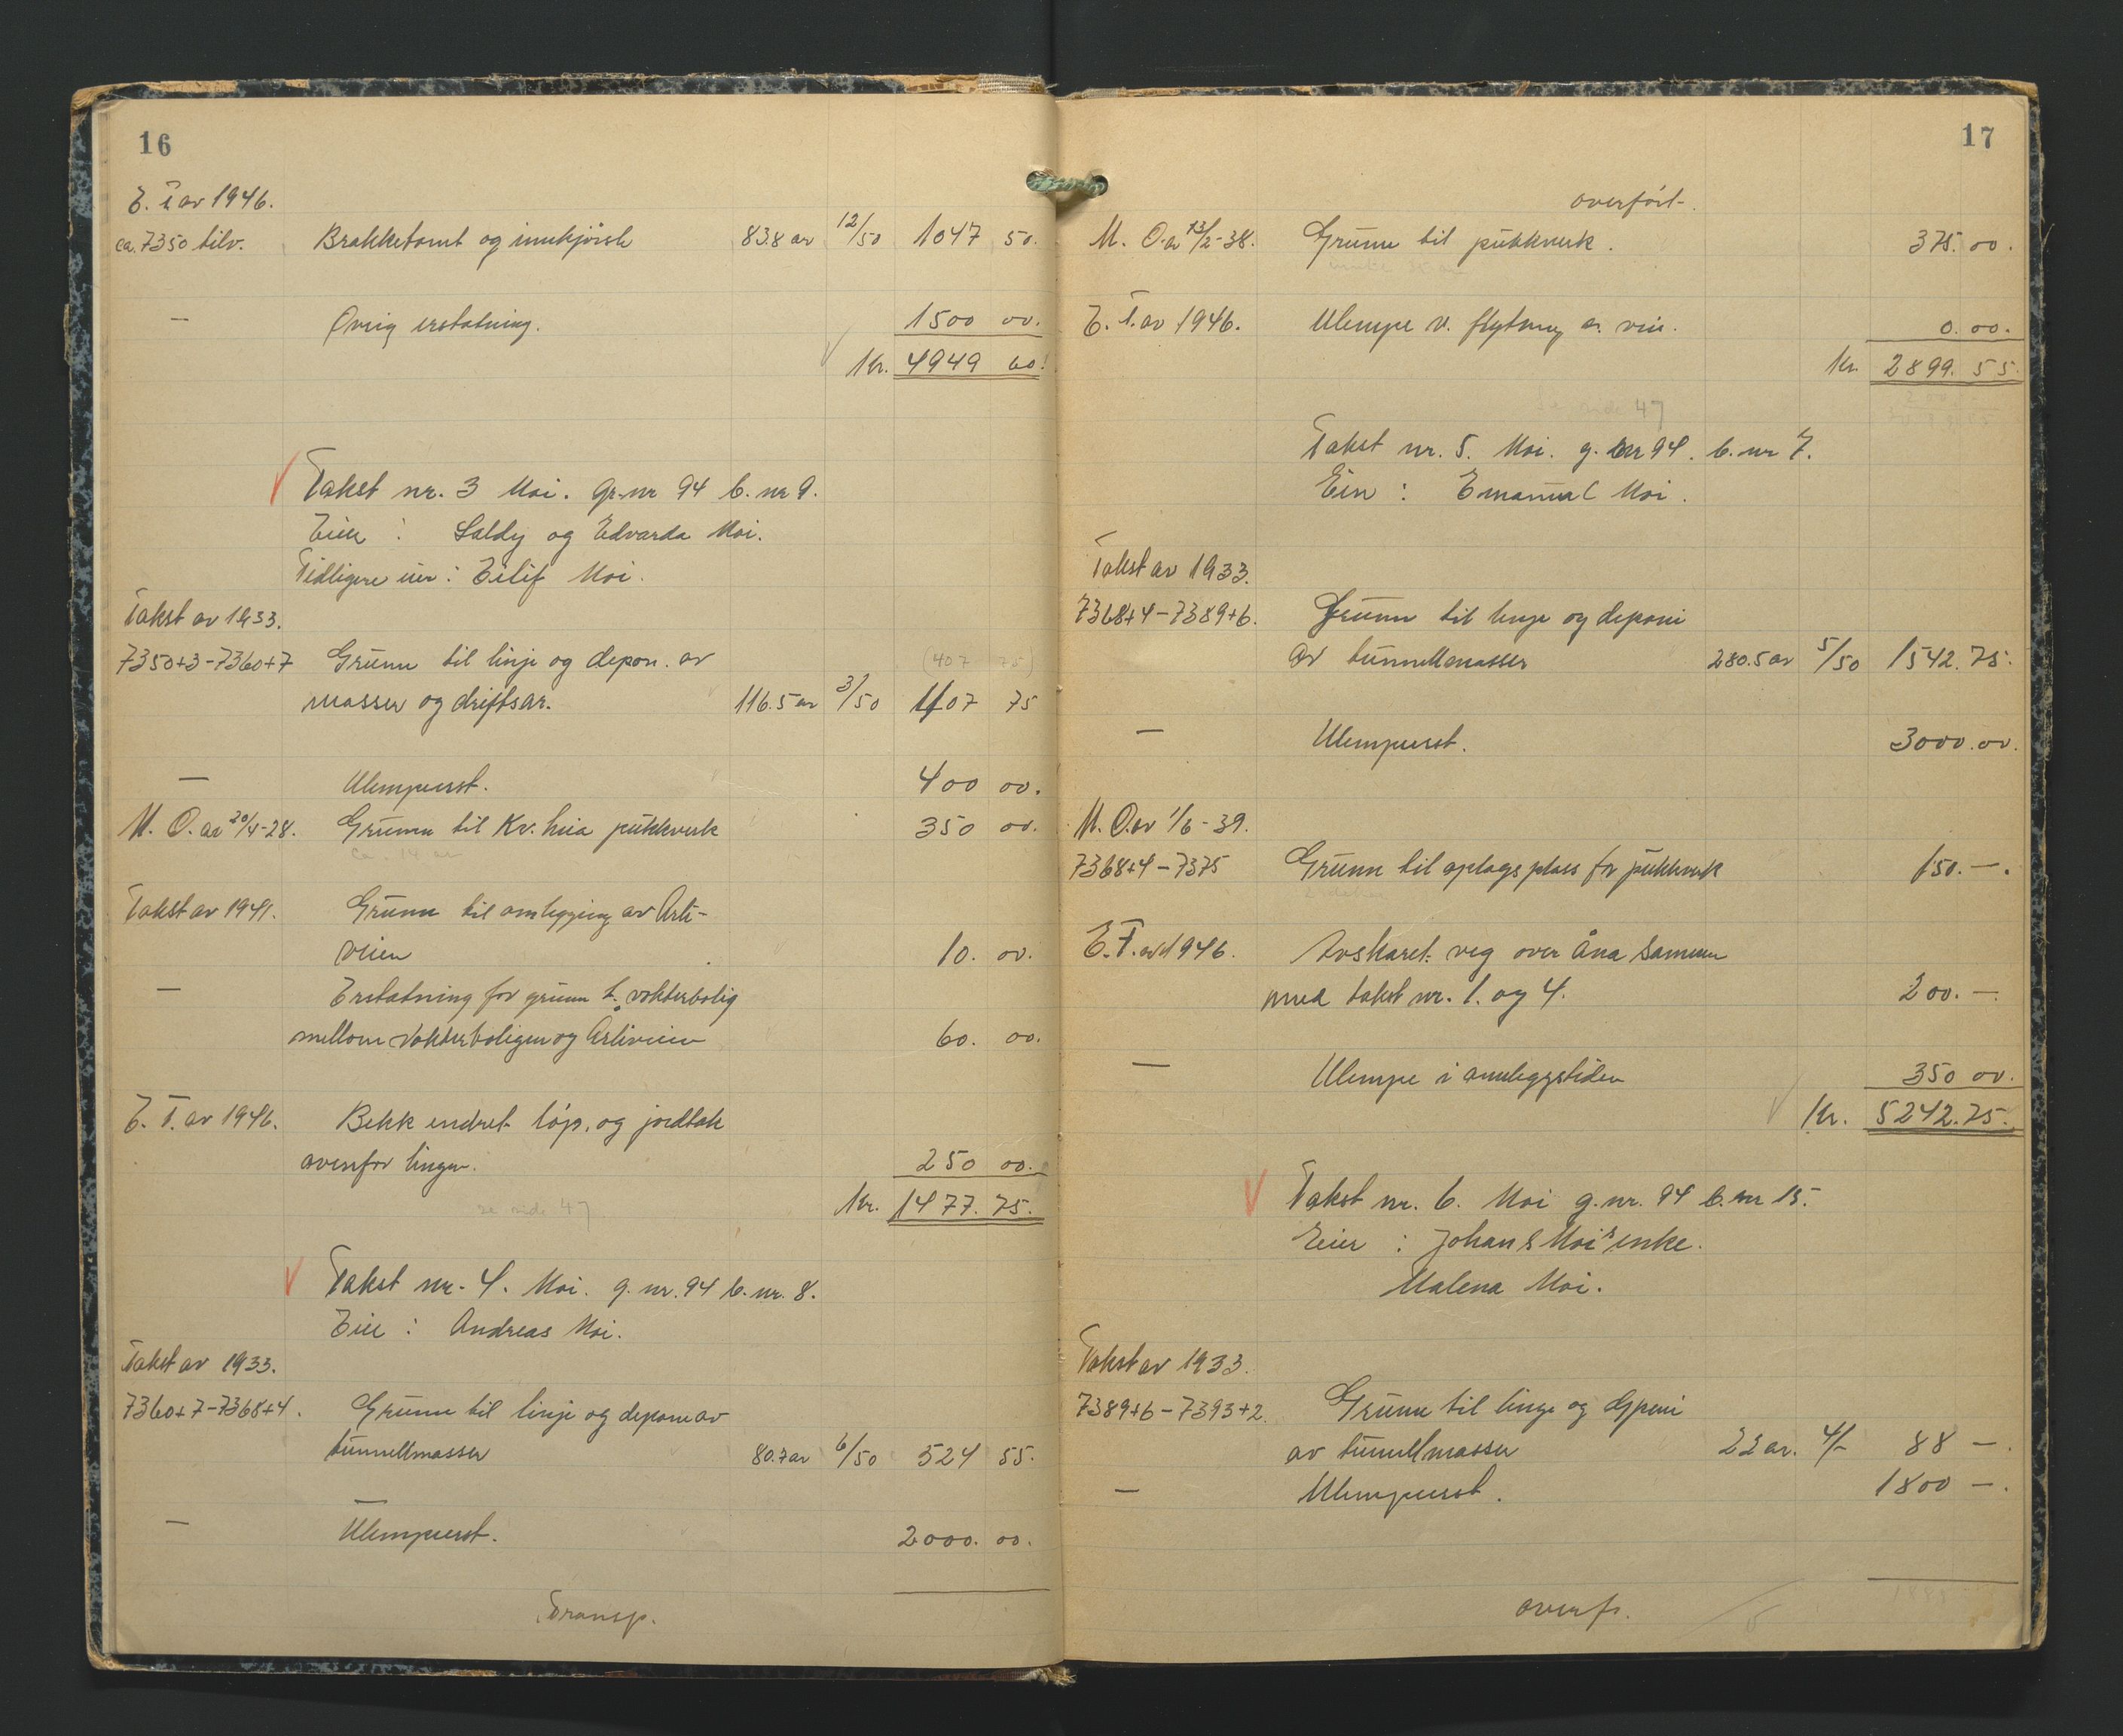 16
E. T. av 1946.
ca. 7350 tilv. Brakketomt og innkjørsle 83.8 ar 12/50 1047 50.
— Øvrig erstatning. 1500 00.
Kr. 4949 60.
Takst nr. 3 Moi. gr.nr 94 b. nr 9.
Eier : Saldy og Edvarda Moi.
Tidligere eier : Eilif Moi.
Takst av 1933.
7350+3-7360+7 Grunn til linje og depon. av (407 75)
masser og driftsar. 116.5 ar 3/50 407 75
— Ulempeerst. 400 00.
M. O. av 20/4-28. Grunn til Kv. heia pukkverk 350 00.
ca. 14 ar
Takst av 1941. Grunn til omlegging av Årli-
veien 10. 00.
— Erstatning for grunn t. vokterbolig
mellom vokterboligen og Årliveien 60. 00.
E. T. av 1946. Bekk endret løp, og jordtak
ovenfor lingen. 250 00.
Kr. 1477. 75.
se side 47
Takst nr. 4. Moi. g. nr. 94 b. nr. 8.
Eier : Andreas Moi.
Takst av 1933.
7360+7-7368+4. Grunn til linje og depone av
tunnellmasser 80.7 ar 6/50 524 55.
— Ulempeerst. 2000. 00.
Transp.
17
overført.
M. O. av 13/2-38. Grunn til pukkverk. 375. 00.
E. T. av 1946. Ulempe v. flytning a. vei. 0. 00.
Kr. 2899. 55.
Se side 47
Takst nr. 5. Moi. g. nr 94. b. nr 7.
Eier : Emanuel Moi.
Takst av 1933.
7368+4-7389+6. Grunn til linje og deponi
av tunnellmasser 280.5 ar 5/50 1542. 75.
— Ulempeerst. 3000. 00.
M. O. av 1/6-39.
7368+4-7375 Grunn til oplagsplass for pukkverk 150. —.
E. T. av 1946. Avskaret veg over åna sammen
med takst nr. 1. og 4. 200. —
— Ulempe i annleggstiden 350 00.
Kr. 5242. 75.
Takst nr. 6. Moi g. nr. 94 b. nr 15.
Eier : Johan S Moi's enke.
Malena Moi.
Takst av 1933.
7389+6-7393+2. Grunn til linge og deponi
av tunnellmasser 22 ar. 4/- 88 —.
— Ulempeerst. 1800 —.
overf.